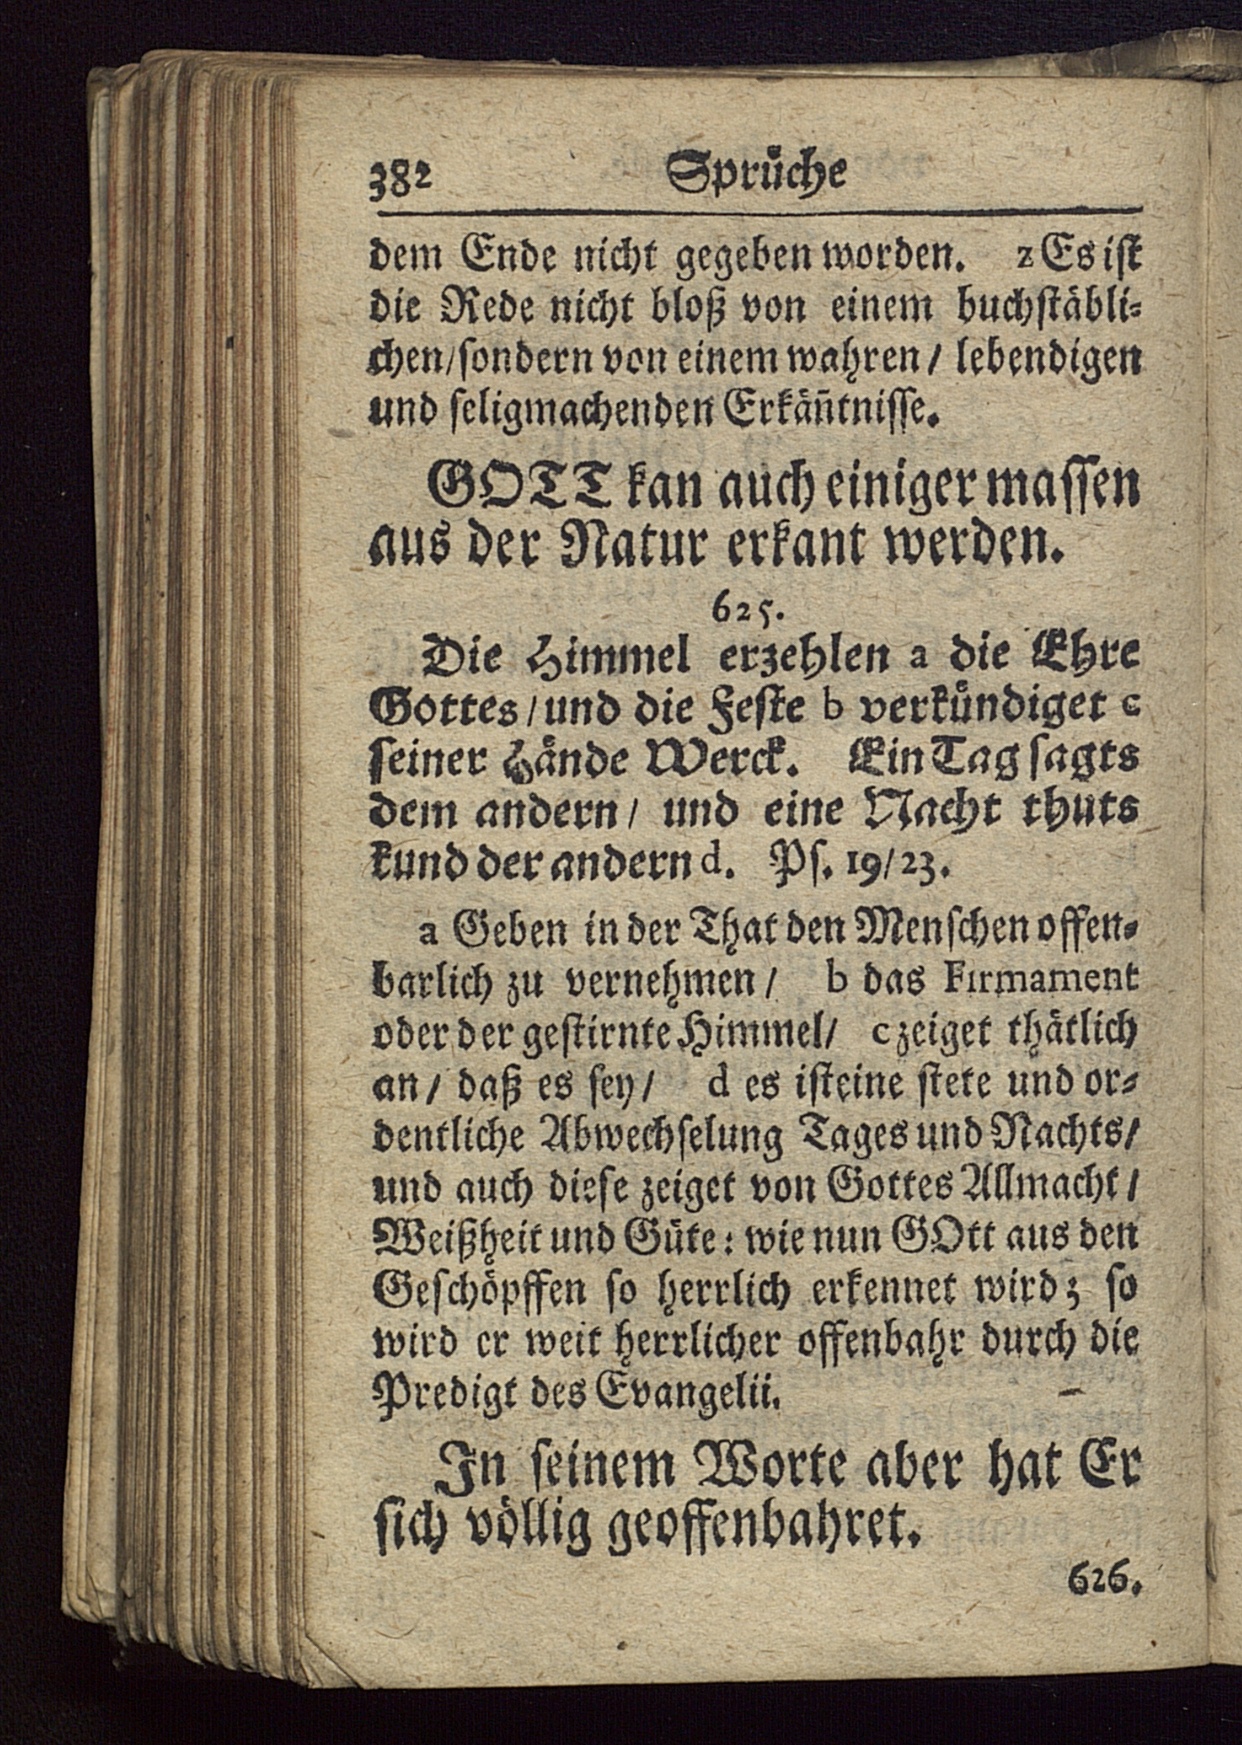 382 Sprüche
dem Ende nicht gegeben worden. z Es ist
die Rede nicht bloß von einem buchstäbli-
chen/sondern von einem wahren / lebendigen
und seligmachenden Erkäñtnisse.
GOTT kan auch einiger massen
aus der Natur erkant werden.
625.
Die Himmel erzehlen a die Ehre
Gottes / und die Feste b verkündiget c
seiner Hände Werck. Ein Tag sagts
dem andern / und eine Nacht thuts
kund der andern d. Ps. 19/23.
a Geben in der That den Menschen offen-
barlich zu vernehmen / b das Firmament
oder der gestirnte Himmel/ c zeiget thätlich
an / daß es sey / d es ist eine stete und or-
dentliche Abwechselung Tages und Nachts/
und auch diese zeiget von Gottes Allmacht /
Weißheit und Güte: wie nun GOtt aus den
Geschöpffen so herrlich erkennet wird; so
wird er weit herrlicher offenbahr durch die
Predigt des Evangelii.
In seinem Worte aber hat Er
sich völlig geoffenbahret.
626.